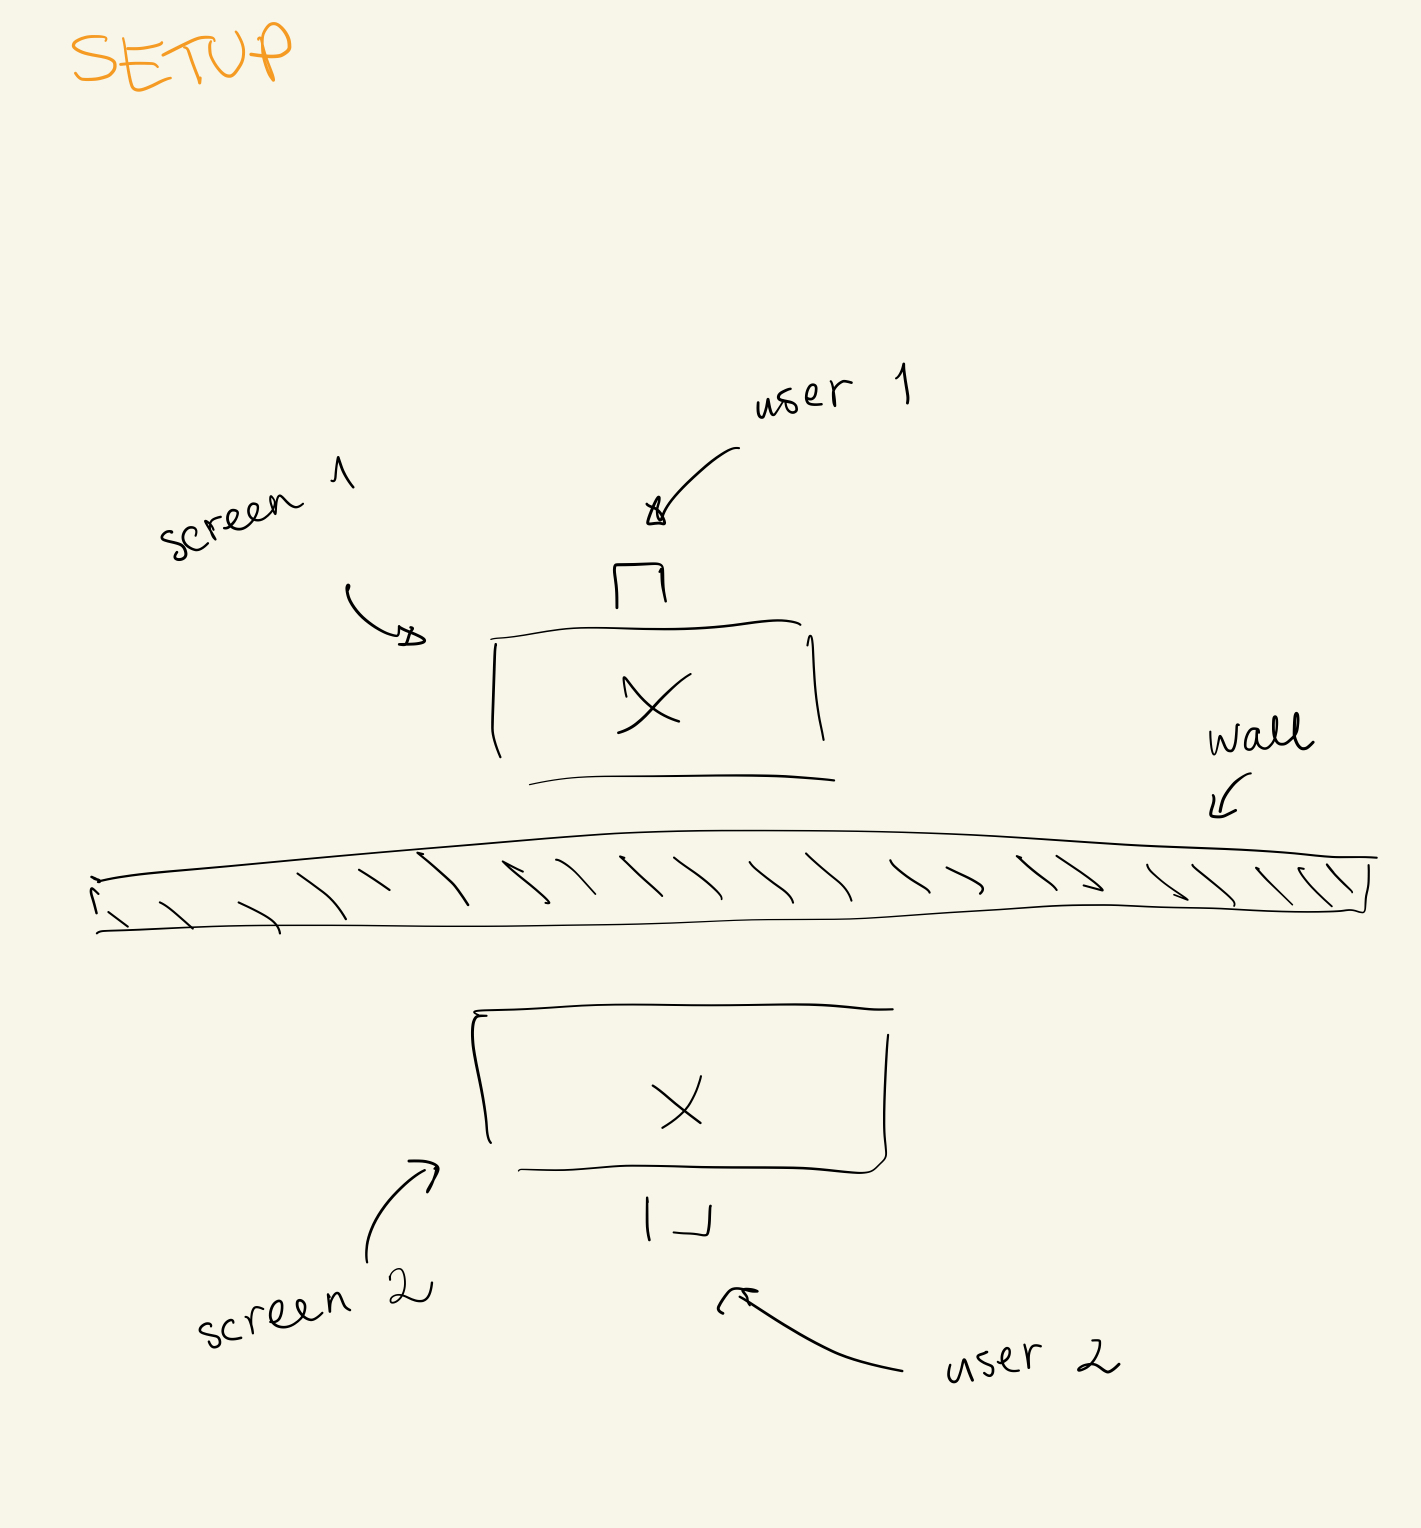 SETUP
user 1
screen 1
X
wall
X
screen 2
user 2